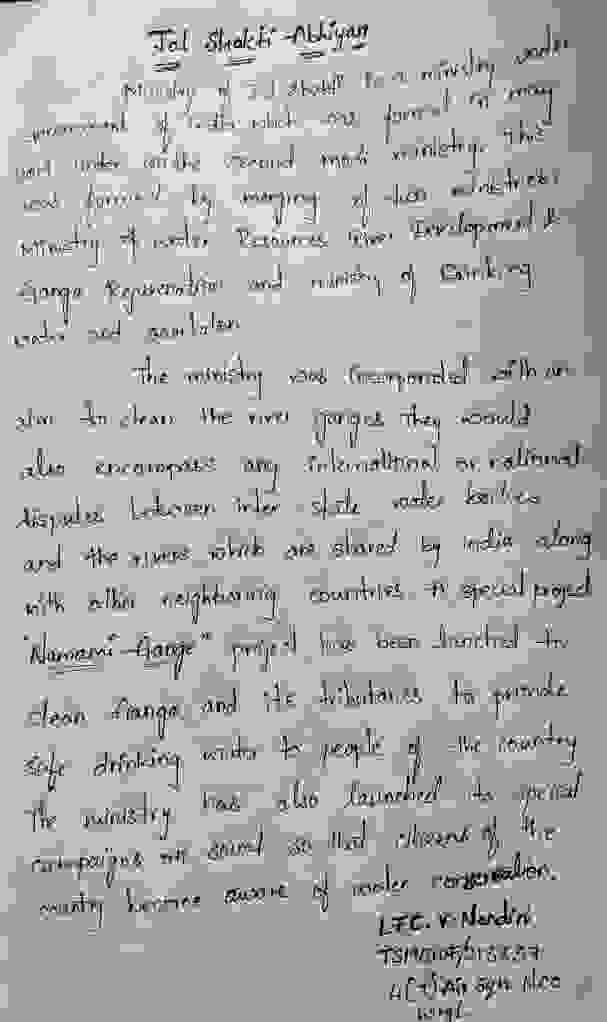 Jal Shakti Abhiyan
Ministry of Jal Shakti is a ministry under
government of India which was formed in may
under the second modi ministry. This
was formed by merging of two ministries
Ministry of water Resources river Development &
Ganga Rejuvenation and ministry of Drinking
water and sanitation
The ministry was incorporated with an
aim to clean the river ganges they would
also encompass any international or national
disputes between inter state water bodies
and the rivers which are shared by india along
with other neighbouring countries. A special project
"Namami Gange" project has been launched to
clean Ganga and its tributaries to provide
safe drinking water to people of the country
The ministry has also launched its special
campaigns on social so that citizens of the
country become aware of water conservation.
LFC. V. Nandini
Air Sqn NCC